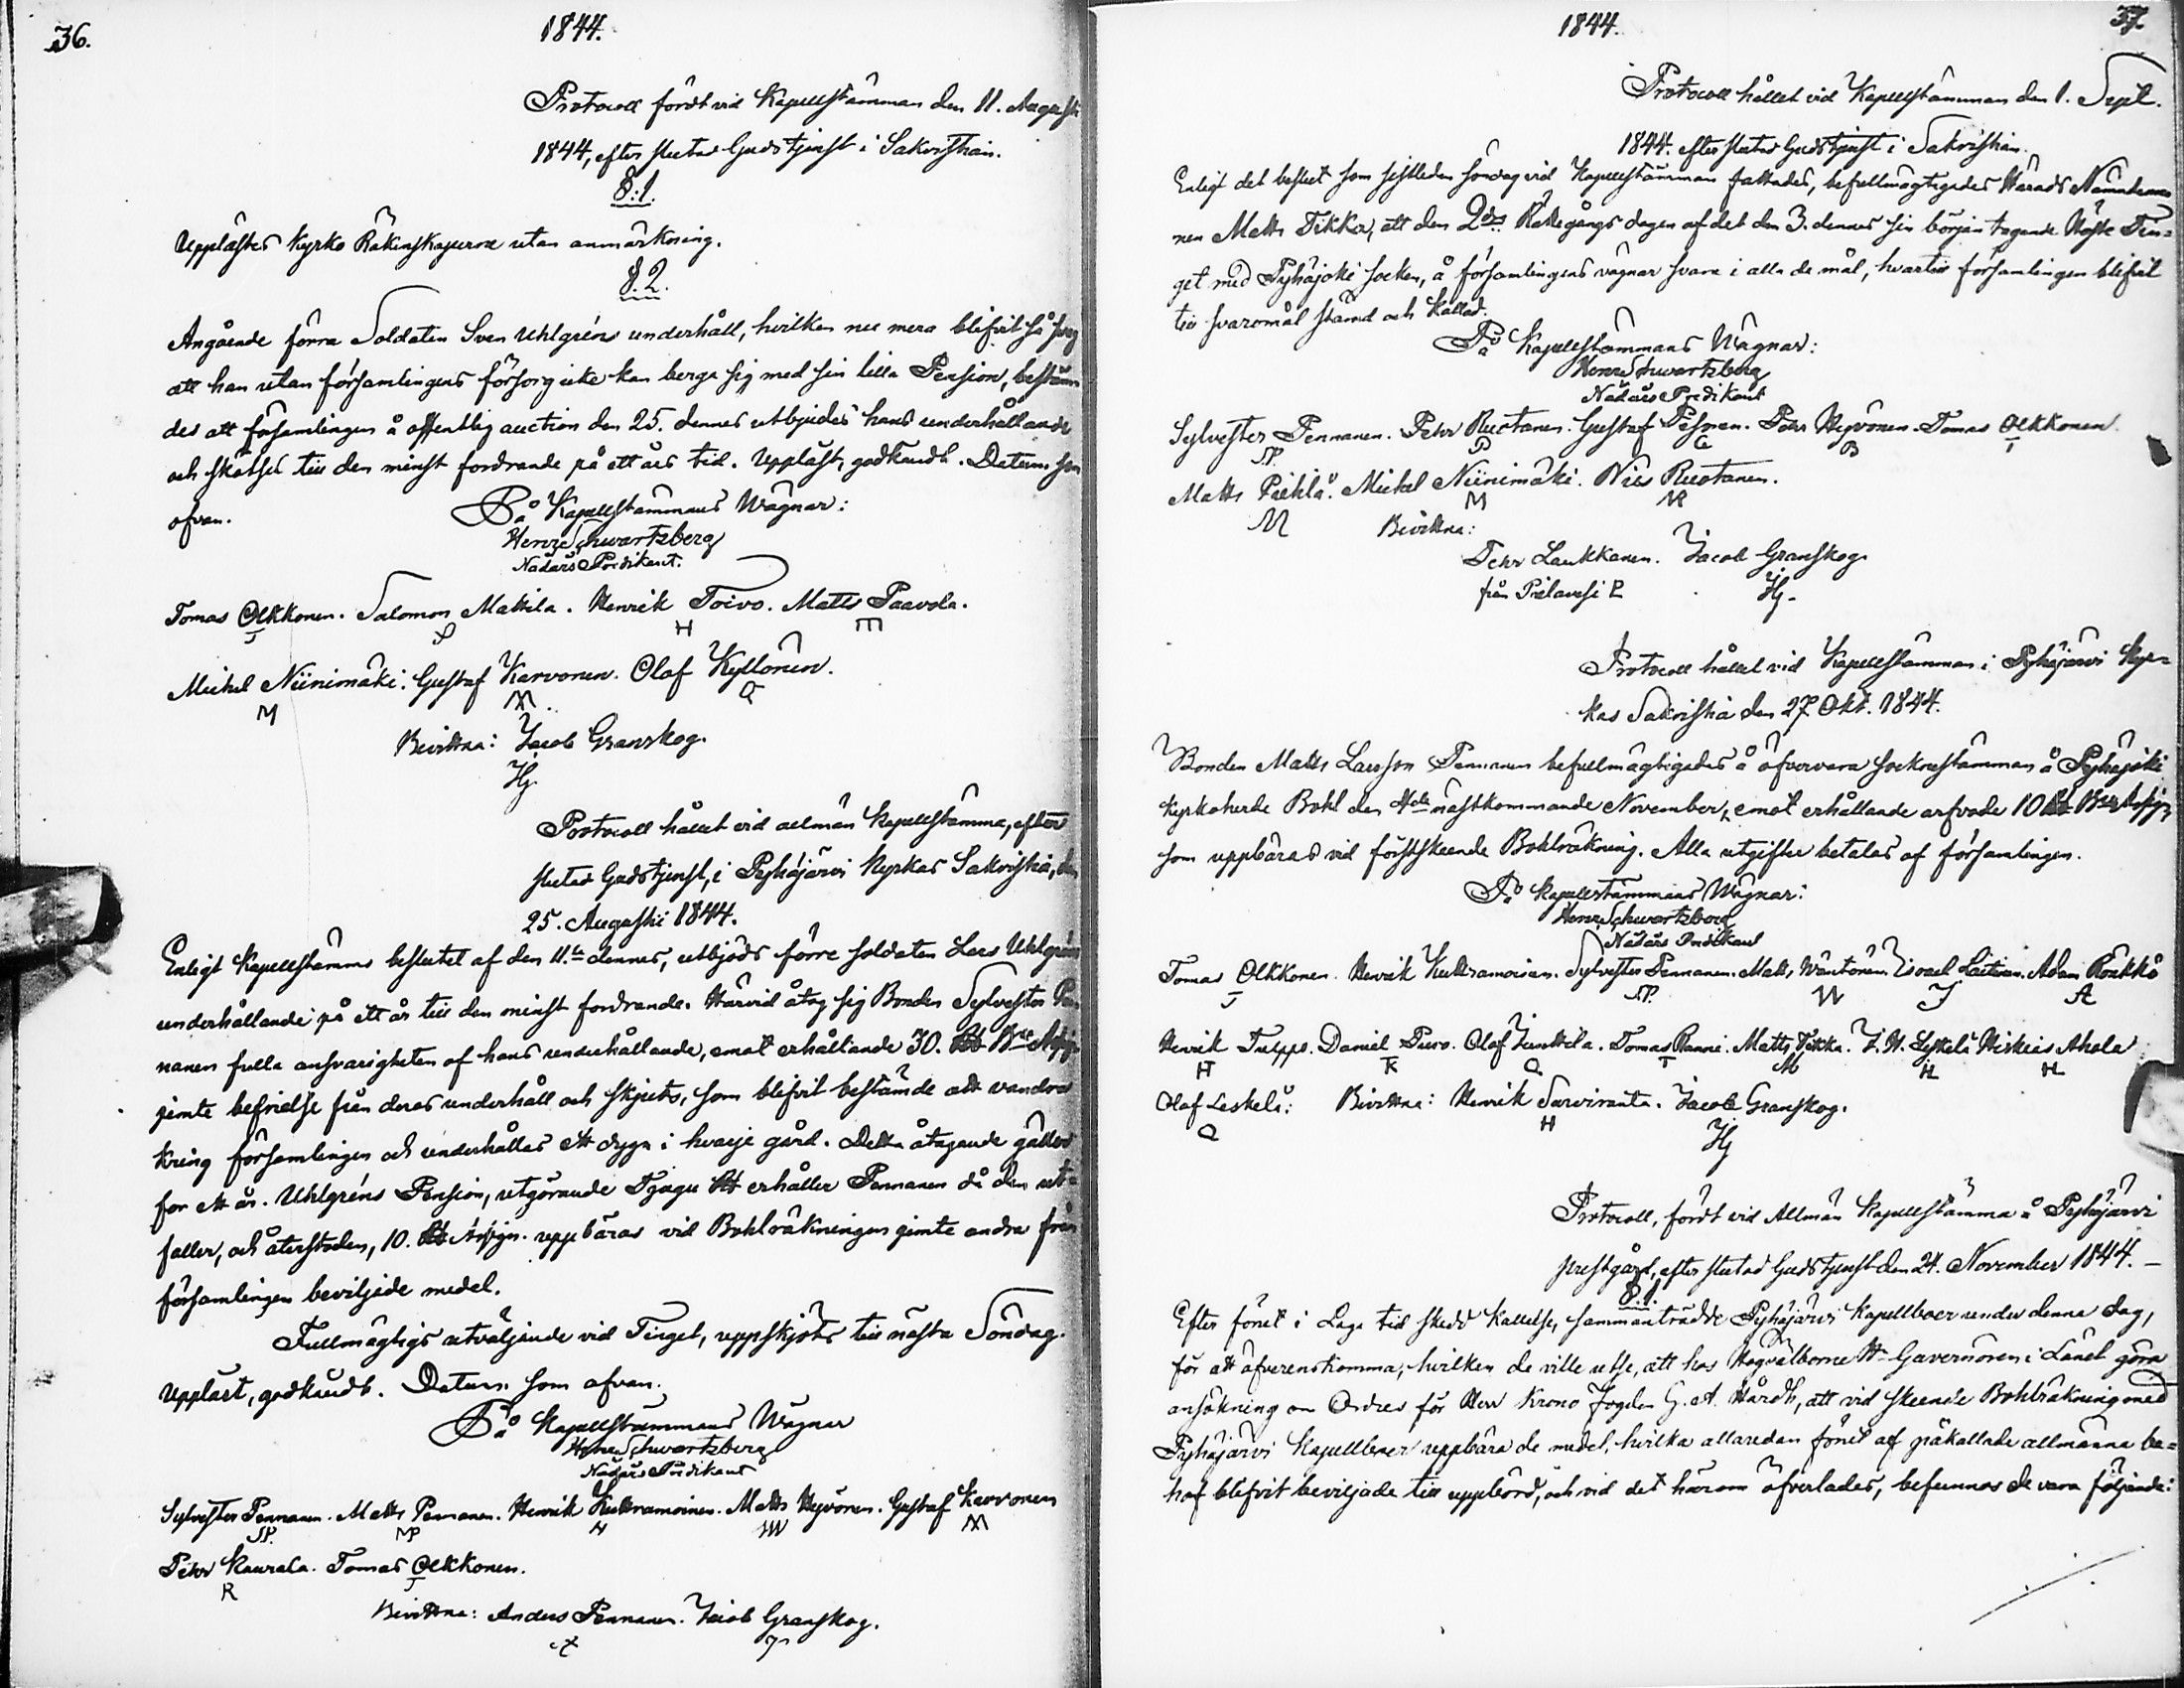 36.
1844.
Protocoll fördt vid Kapellstämman den 11. Augusti
1844, efter slutad Gudstjenst i Sakristian.
§.1.
Upplästes Kyrko Räkenskaperne utan anmärkning.
§.2.
Angående förra Soldaten Sven Uhlgréns underhåll, hvilken nu mera blifvit så
att han utan församlingens försorg icke kan berga sig med sin lilla Pension, bestäm
des att församlingen å offentlig auction den 25. dennes utbjudes hans underhållande
och skötsel till den minst fordrande på ett års tid. Uppläst, godkändt. Datum som
ofvan.
På Kapellstämmans Wägnar:
Henr. Schwartzberg
Nådårs Predikant.
Tomas Olkkonen. Salomon Mattila. Henrik Toivo. Matts Paavola.
T S H m
Michel Niinimäki. Gustaf Karvonen. Olof Kyllönen.
M
Bevittna: Jacob Granskog.
Protocoll hållet vid allmän Kapellstämma, efter
slutad Gudstjenst, i Pyhäjärvi Kyrkas Sakristia, den
25. Augusti 1844.
Enligt Kapellstämmo beslutet af den 11.te dennes, utbjöds förre soldaten Lars Uhlgréns
underhållande på ett år till den minst fordrande. Härvid åtog sig Bonden Sylvester Pen
nanen fulla ansvarigheten af hans underhållande, emot erhållande 30.
jemte befrielse från deras underhåll och skjuts, som blifvit bestämde att vandra
kring församlingen och underhållas ett dygn i hvarje gård. Detta åtagande gäller
for ett år. Uhlgréns Pension, utgörande Tjugu erhåller Pennanen då den ut-
faller, och återstoden, 10. Assign. uppbäras vid Bohlräkningen jemte andra från
församlingen beviljade medel.
Fullmägtigs utväljande vid Tinget, uppskjöts till nästa Söndag.
Uppläst, godkändt. Datum som ofvan.
På Kapellstämmans Wägnar
Henr. Schwartzberg
Nådårs Predikant
Sylvester Pennanen. Matts Pennanen. Henrik Kuttramoinen. Matts Hyvönen. Gustaf Karvonen
SP. MP H
Petter Kaurala. Tomas Olkkonen.
R T
Bevittna: Anders Pennanen. Jacob Granskog.
1844.
37.
Protocoll hållet vid Kapellstämman den 1. Sept.
1844. efter slutad Gudstjenst i Sakristian.
Enligt det beslut som sistleden söndag vid Kapellstämman fattades, befullmägtigades Härads Nämndeman
nen Matts Tikka, att den 2dra Rättegångs dagen af det den 3. dennes sin början tagande Höste Tin-
get med Pyhäjoki socken, å församlingens vägnar svara i alla de mål, hvartill församlingen blifvit
till svaromål stämd och kallad.
På Kapellstämmans Wägnar:
Henr. Schwartzberg
Nådårs Predikant
Sylvester Pennanen. Petter Ruotanen. Gustaf Pesonen. Petter Hyvönen. Tomas Olkkonen.
SP. P G T
Matts Pihla. Michel Niinimäki. Nils Ruotanen.
M M
Bevittna:
Petter Laukkanen. Jacob Granskog
från Pielavesi P
Protocoll hållet vid Kapellstämman i Pyhäjärvi Kyr-
kas Sakristia den 27 Okt. 1844.
Bonden Matts Larsson Pennanen befullmägtigades å öfvervara sockenstämman å Pyhäjoki
Kyrkoherde Bohl den 4de nästkommande November, emot erhållande arfvode 10
som uppbäras vid förstskeende Bohlräkning. Alla utgifter betalas af församlingen.
På Kapellstämmans Wägnar:
Henr. Schwartzberg
Nådårs Predikant
Tomas Olkkonen. Henrik Kuttramoinen. Sylvester Pennanen. Matts Wäntönen. Israel Laitinen. Adam Rönkkö
T SP. W J A
Henrik Tulppo. Daniel Puro. Olof Junttila. Tomas Ranni. Matts Tikka. J. H. Leskelä Hiskias Ahola
H O T M H H
Olof Leskelä. Bevittna: Henrik Surviranta. Jacob Granskog.
O H
Protocoll, fördt vid Allmän Kapellstämma å Pyhäjärvi
prestgård, efter slutad Gudstjenst den 24. November 1844. -
§.1.
Efter förut i Laga tid skedd Kallelse, sammanträdde Pyhäjärvi Kapellboer under denna dag,
för att öfverenskomma, hvilken de ville utse, att hos Högvälborne Hr Gouvernören i Länet göra
ansökning om Ordres för Herr Krono Fogden G. A. Hårdh, att vid skeende Bohlräkning med
Pyhäjärvi Kapellboer uppbära de medel, hvilka allaredan förut af påkallade allmänna be-
hof blifvit beviljade till uppbörd, och vid det härom öfverlades, befunnos de vara följande: